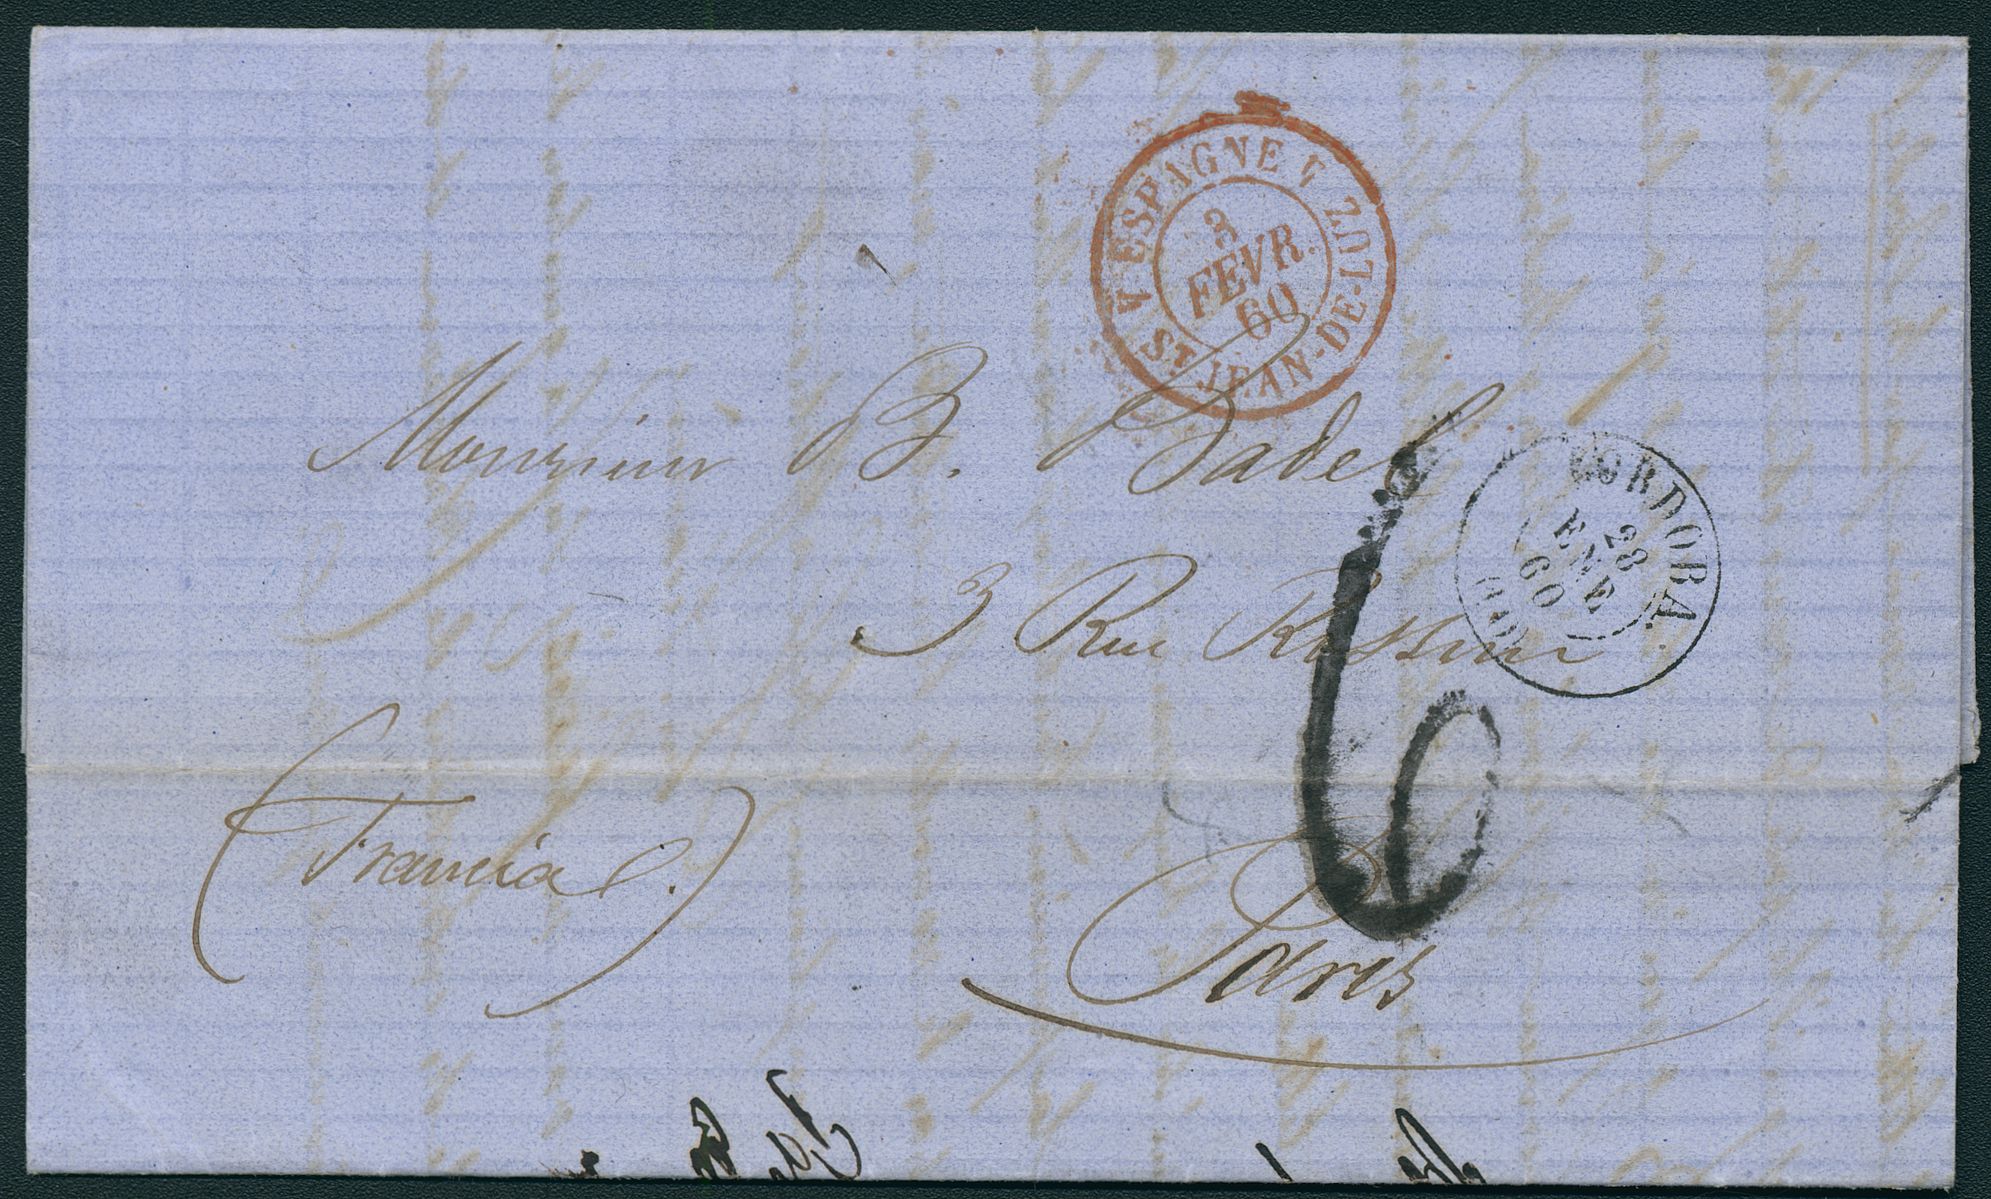 V ESPAGNE V
3
FEVR.
60
ST JEAN-DE-LUZ
Monsieur B. Badel
CORDOBA.
28
ENE
60
3 Rue Rossini
6
(Francia.)
Paris